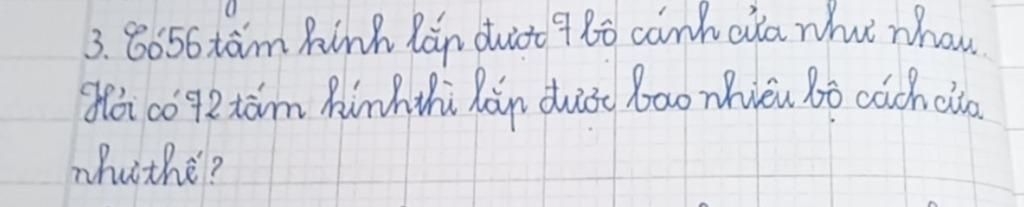 3. Có 56 tấm kính lắp được 7 bộ cánh cửa như nhau.
Hỏi có 72 tấm kính thì lắp được bao nhiêu bộ cách cửa
như thế?